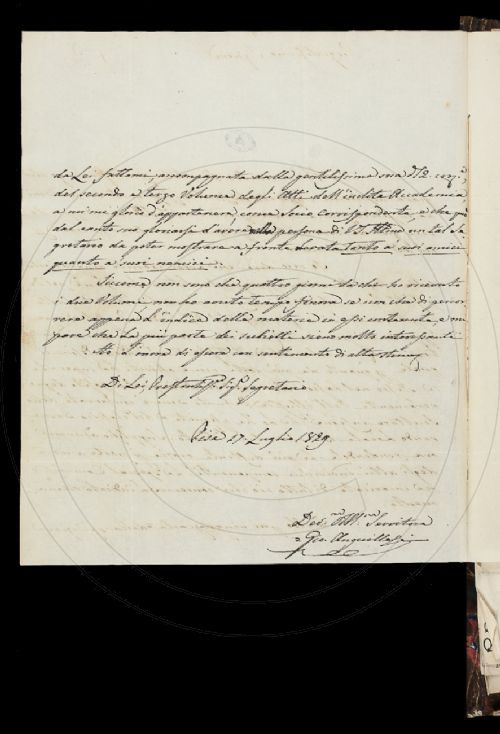 da Lei fattami, accompagnata dalla gentilissima sua de' 12 corr.e
del secondo e terzo Volume degli Atti dell'inclita Accademia,
a cui mi glorio d'appartenere, come Socio Corrispondente, e che può
dal canto suo gloriarsi d'avere nella persona di un tal Se
gretario da poter mostrare a fronte levata tanto a suoi amici
quanto a suoi nemici.
Siccome non sono che quattro giorni da che ho ricevuto
i due Volumi, non ho avuto tempo finora se non che di percor
rere appena l'indice delle materie in essi contenute, e mi
pare che la più parte dei siano molto interessanti
Ho l'onore di essere con sentimento di alta stima
Di Lei Prestantiss. Sig. Segretario
Pisa 17 Luglio 1829
Dev.mo Obb.mo Servitore
Gio. Anguillesi